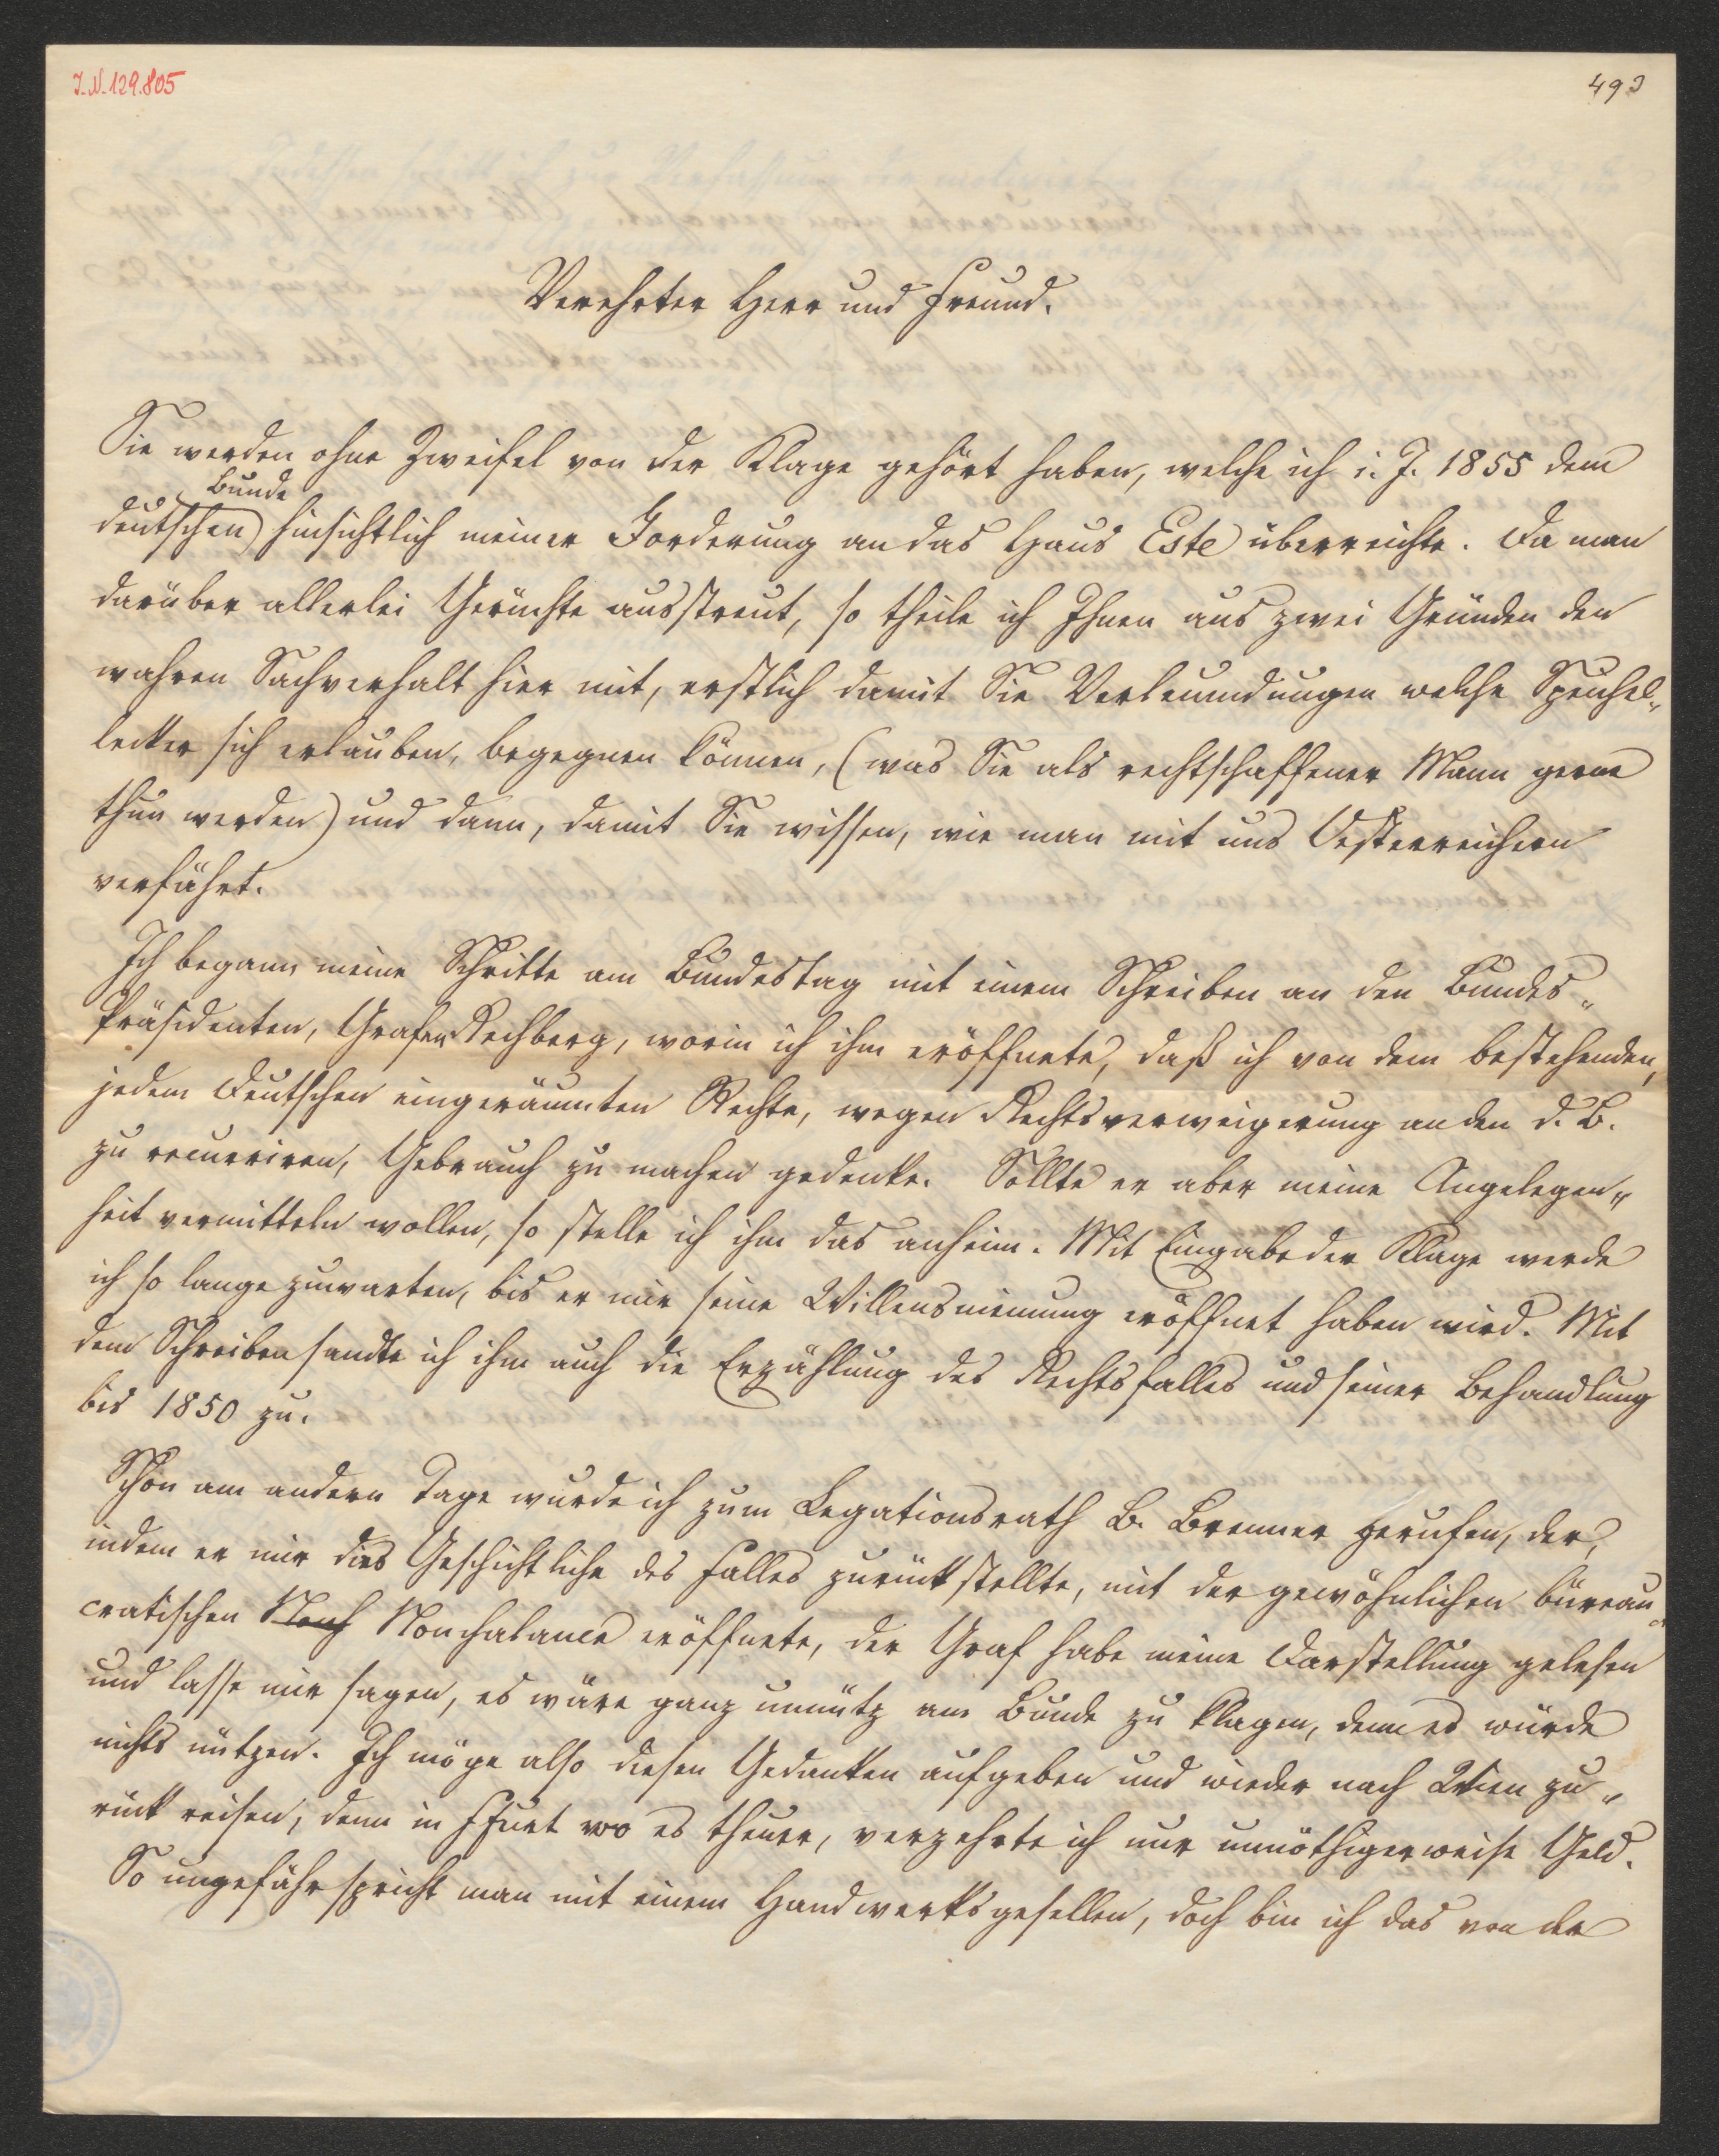 I. N. 129.805
493
Verehrter Herr und Freund.
Sie werden ohne Zweifel von der Klage gehört haben, welche ich i. J. 1855 dem
Bunde
deutschen hinsichtlich meiner Forderung an das Haus Este überreichte. Da man
darüber allerlei Gerüchte ausstreut, so theile ich Ihnen aus zwei Gründen den
wahren Sachverhalt hier mit, erstlich damit Sie Verleumdungen welche Speichel„
lecker sich erlauben, begegnen können, (was Sie als rechtschaffener Mann gerne
thun werden) und dann, damit Sie wissen, wie man mit uns Oesterreichern
verfährt.
Ich begann meine Schritte am Bundestag mit einem Schreiben an den Bundes„
Präsidenten, Grafen Rechberg, worin ich ihm eröffnete, daß ich von dem bestehenden,
jedem Deutschen eingeräumten Rechte, wegen Rechtsverweigerung an den d. B.
zu recurriren, Gebrauch zu machen gedenke. Sollte er aber meine Angelegen„
heit vermitteln wollen, so stelle ich ihm das anheim. Mit Eingabe der Klage werde
ich so lange zuwarten, bis er mir seine Willensmeinung eröffnet haben wird. Mit
dem Schreiben sandte ich ihm auch die Erzählung des Rechtsfalles und seiner Behandlung
bis 1850 zu.
Schon am andern Tage wurde ich zum Legationsrath B. Brenner gerufen, der,
indem er mir das Geschichtliche des Falles zurückstellte, mit der gewöhnlichen büreau„
cratischen Nonch Nonchalance eröffnete, der Graf habe meine Darstellung gelesen
und lasse mir sagen, es wäre ganz unnütz am Bunde zu klagen, denn es würde
nichts nützen. Ich möge also diesen Gedanken aufgeben und wieder nach Wien zu„
rück reisen, denn in Ffurt wo es theuer, verzehrte ich nur unnöthigerweise Geld.
So ungefähr spricht man mit einem Handwerksgesellen, doch bin ich das von der